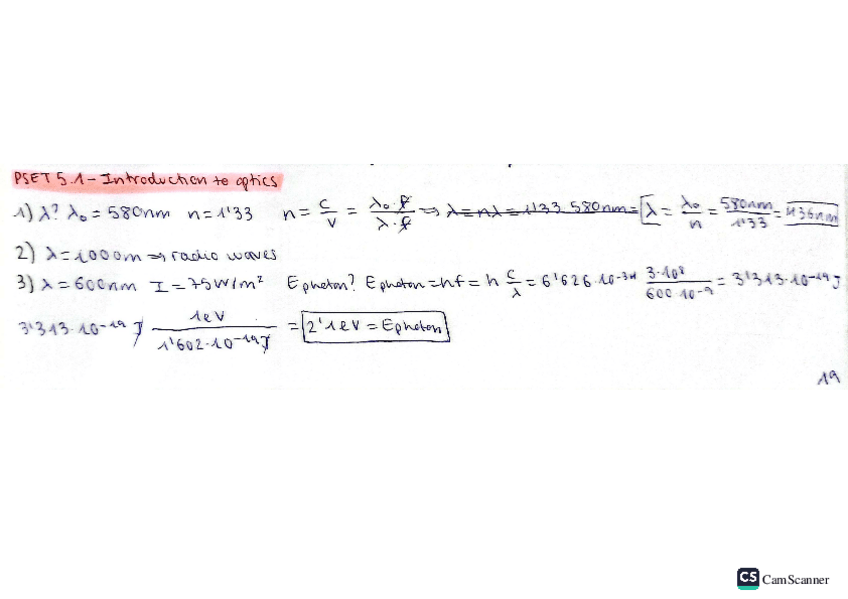 PSET 5.1 - Introduction to optics
1) λ? λ₀ = 580nm n = 1'33 n = c/v = λ₀·f/λ·f ⇒ λ = nλ = 1'33·580nm = [λ = λ₀/n = 580nm/1'33 = 436nm
2) λ = 1000m ⇒ radio waves
3) λ = 600nm I = 75W/m² Ephoton? Ephoton = hf = h c/λ = 6'626·10⁻³⁴ 3·10⁸/600·10⁻⁹ = 3'313·10⁻¹⁹J
3'313·10⁻¹⁹ J 1eV/1'602·10⁻¹⁹J = 2'1eV = Ephoton
19
CS CamScanner